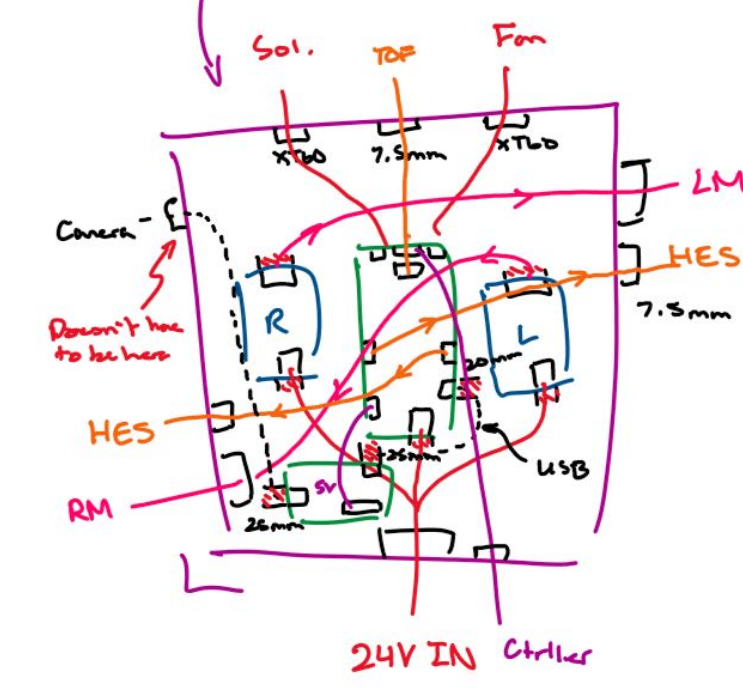 Sol.
TOF
Fan
XT60
7.5mm
XT60
LM
Camera
HES
7.5mm
Doesn't have
to be here
R
L
20mm
HES
25mm
USB
5V
RM
25mm
24V IN
Ctrller